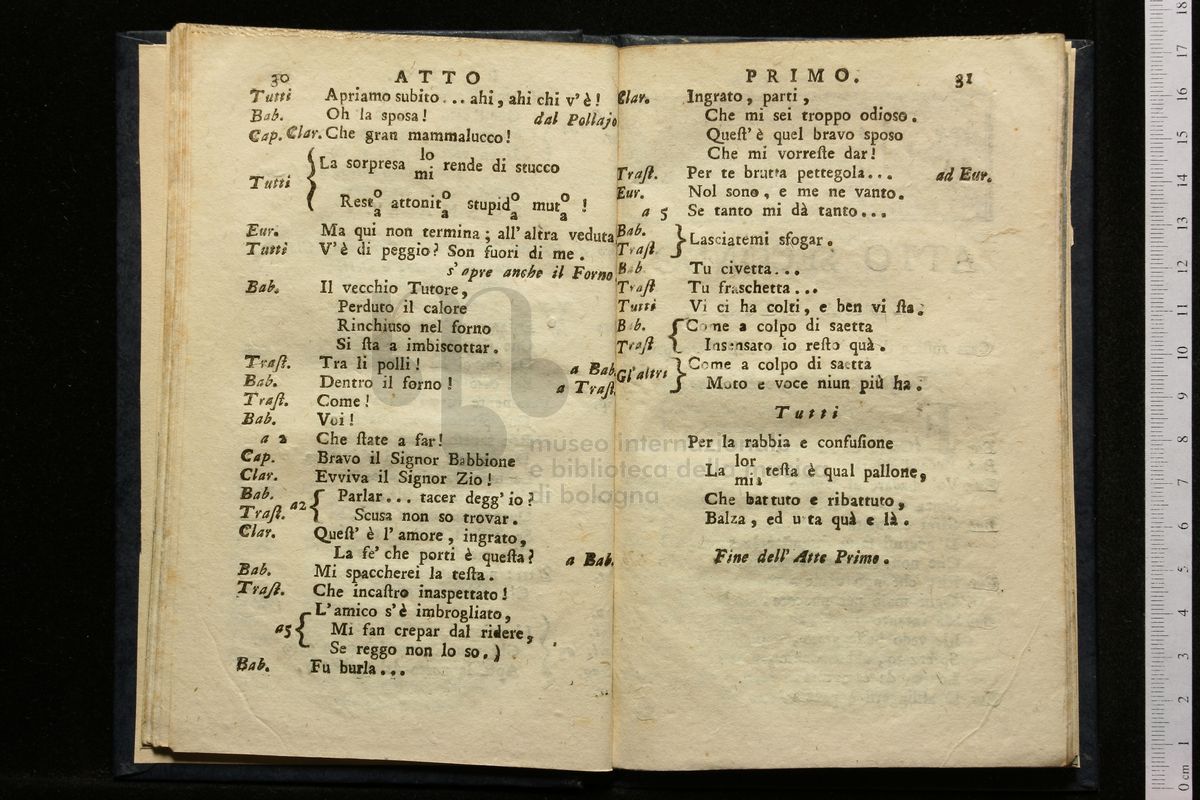 30 ATTO
Tutti Apriamo subito... ahi, ahi chi v'è!
Bab. Oh la sposa! dal Pollajo
Cap. Clar. Che gran mammalucco!
Tutti { La sorpresa lo/mi rende di stucco
Rest o/a attonit o/a stupid o/a mut o/a !
Eur. Ma qui non termina; all'altra veduta
Tutti V'è di peggio? Son fuori di me.
s'apre anche il Forno
Bab. Il vecchio Tutore,
Perduto il calore
Rinchiuso nel forno
Si ſta a imbiscottar.
Traſt. Tra li polli! a Bab.
Bab. Dentro il forno! a Traſt.
Traſt. Come!
Bab. Voi!
a 2 Che ſtate a far!
Cap. Bravo il Signor Babbione
Clar. Evviva il Signor Zio!
Bab. Traſt. a2 { Parlar... tacer degg'io?
Scusa non so trovar.
Clar. Queſt'è l'amore, ingrato,
La fe' che porti è queſta? a Bab.
Bab. Mi spaccherei la teſta.
Traſt. Che incaſtro inaspettato!
a5 { L'amico s'è imbrogliato,
Mi fan crepar dal ridere,
Se reggo non lo so.)
Bab. Fu burla...
PRIMO. 31
Clar. Ingrato, parti,
Che mi sei troppo odioso.
Queſt'è quel bravo sposo
Che mi vorreſte dar!
Traſt. Per te brutta pettegola... ad Eur.
Eur. Nol sono, e me ne vanto.
a 5 Se tanto mi dà tanto...
Bab. Traſt. } Lasciatemi sfogar.
Bab. Tu civetta...
Traſt Tu fraschetta...
Tutti Vi ci ha colti, e ben vi ſta.
Bab. Traſt { Come a colpo di saetta
Insensato io reſto quà.
Gl'altri } Come a colpo di saetta
Moto e voce niun più ha.
Tutti
Per la rabbia e confuſione
La lor/mia teſta è qual pallone,
Che battuto e ribattuto,
Balza, ed urta quà e là.
Fine dell'Atto Primo.
museo internazionale
e biblioteca della musica
di bologna
0 cm 1 2 3 4 5 6 7 8 9 10 11 12 13 14 15 16 17 18